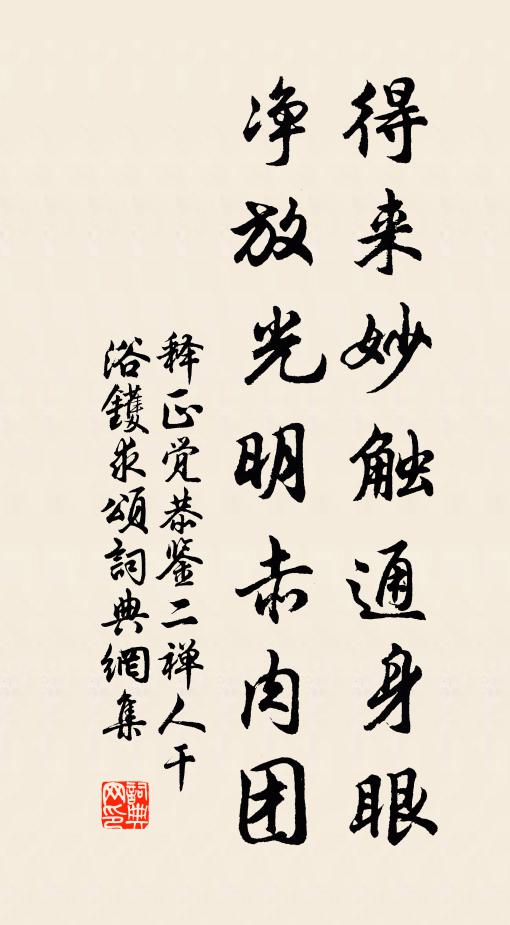 得来妙触通身眼
净放光明赤肉团
释正觉恭鉴二禅人干
浴鑊求頌詞典網集
詞典网印